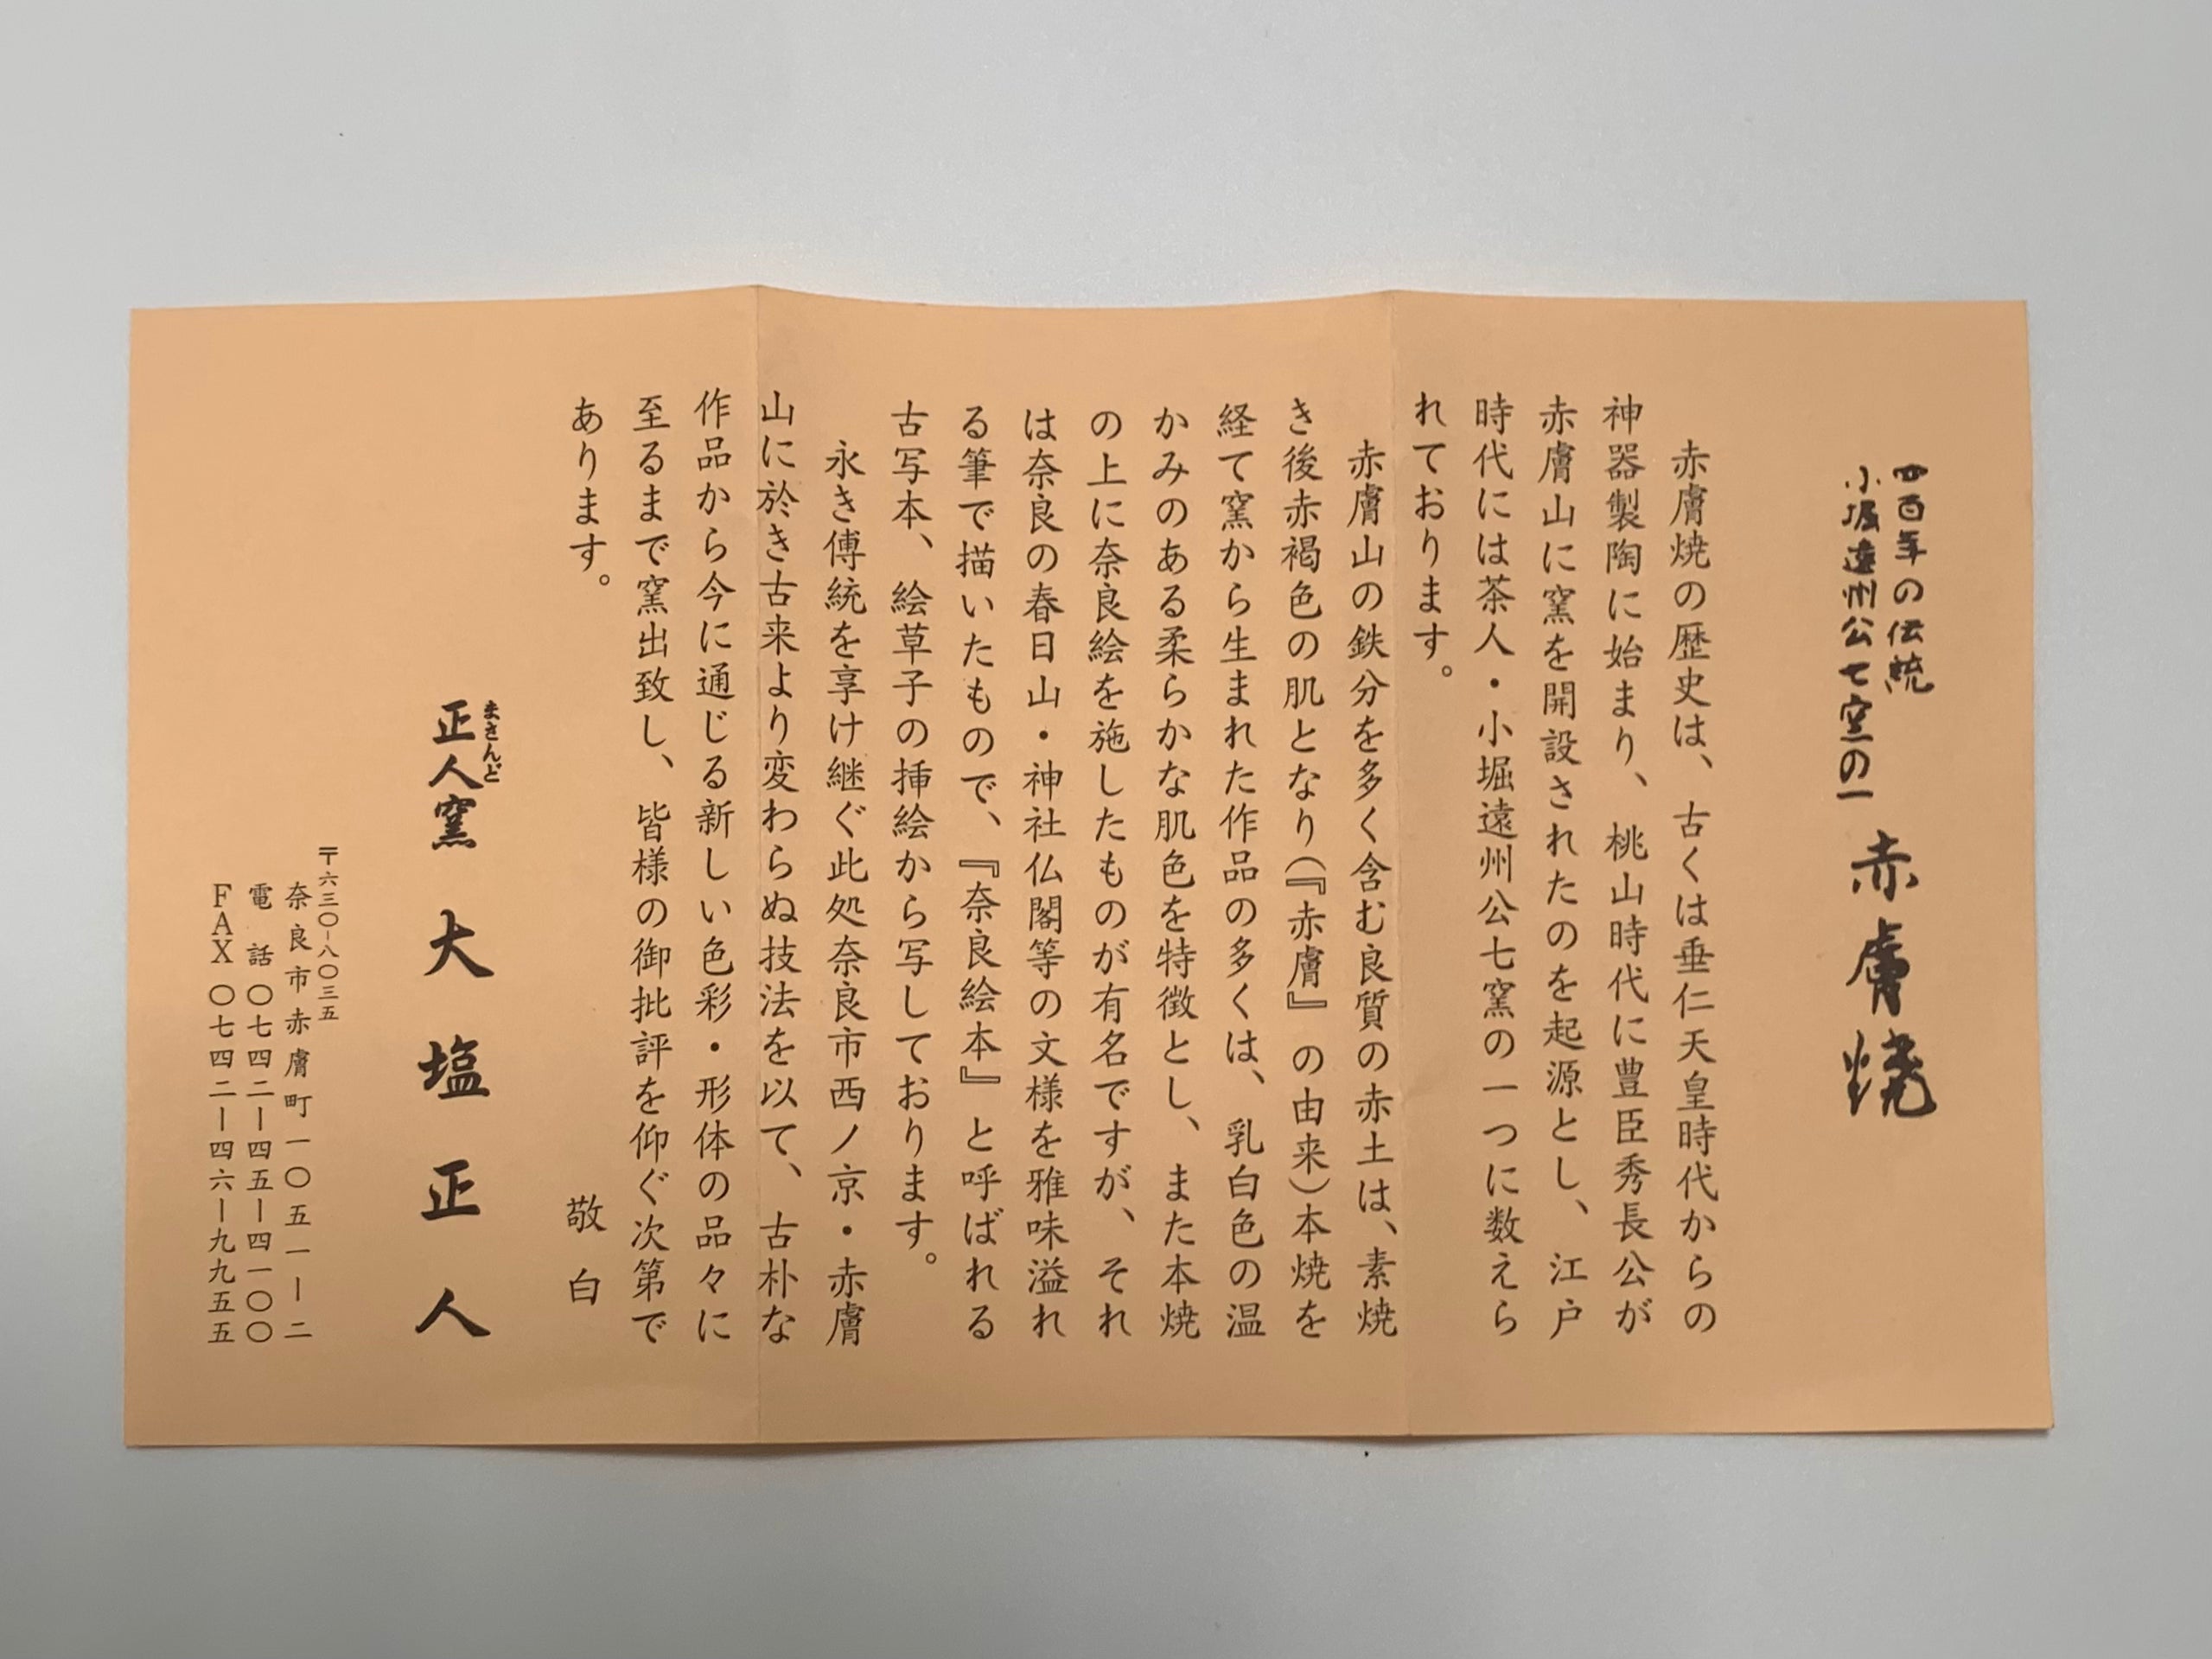 四百年の伝統
小堀遠州公七窯の一
赤膚焼
赤膚焼の歴史は、古くは垂仁天皇時代からの
神器製陶に始まり、桃山時代に豊臣秀長公が
赤膚山に窯を開設されたのを起源とし、江戸
時代には茶人・小堀遠州公七窯の一つに数えら
れております。
赤膚山の鉄分を多く含む良質の赤土は、素焼
き後赤褐色の肌となり(『赤膚』の由来)本焼を
経て窯から生まれた作品の多くは、乳白色の温
かみのある柔らかな肌色を特徴とし、また本焼
の上に奈良絵を施したものが有名ですが、それ
は奈良の春日山・神社仏閣等の文様を雅味溢れ
る筆で描いたもので、『奈良絵本』と呼ばれる
古写本、絵草子の挿絵から写しております。
永き傳統を享け継ぐ此処奈良市西ノ京・赤膚
山に於き古来より変わらぬ技法を以て、古朴な
作品から今に通じる新しい色彩・形体の品々に
至るまで窯出致し、皆様の御批評を仰ぐ次第で
あります。
敬白
まさんど
正人窯 大塩正人
〒六三〇-八〇三五
奈良市赤膚町一〇五一ー二
電話 〇七四二ー四五ー四一〇〇
FAX 〇七四二ー四六ー九九五五